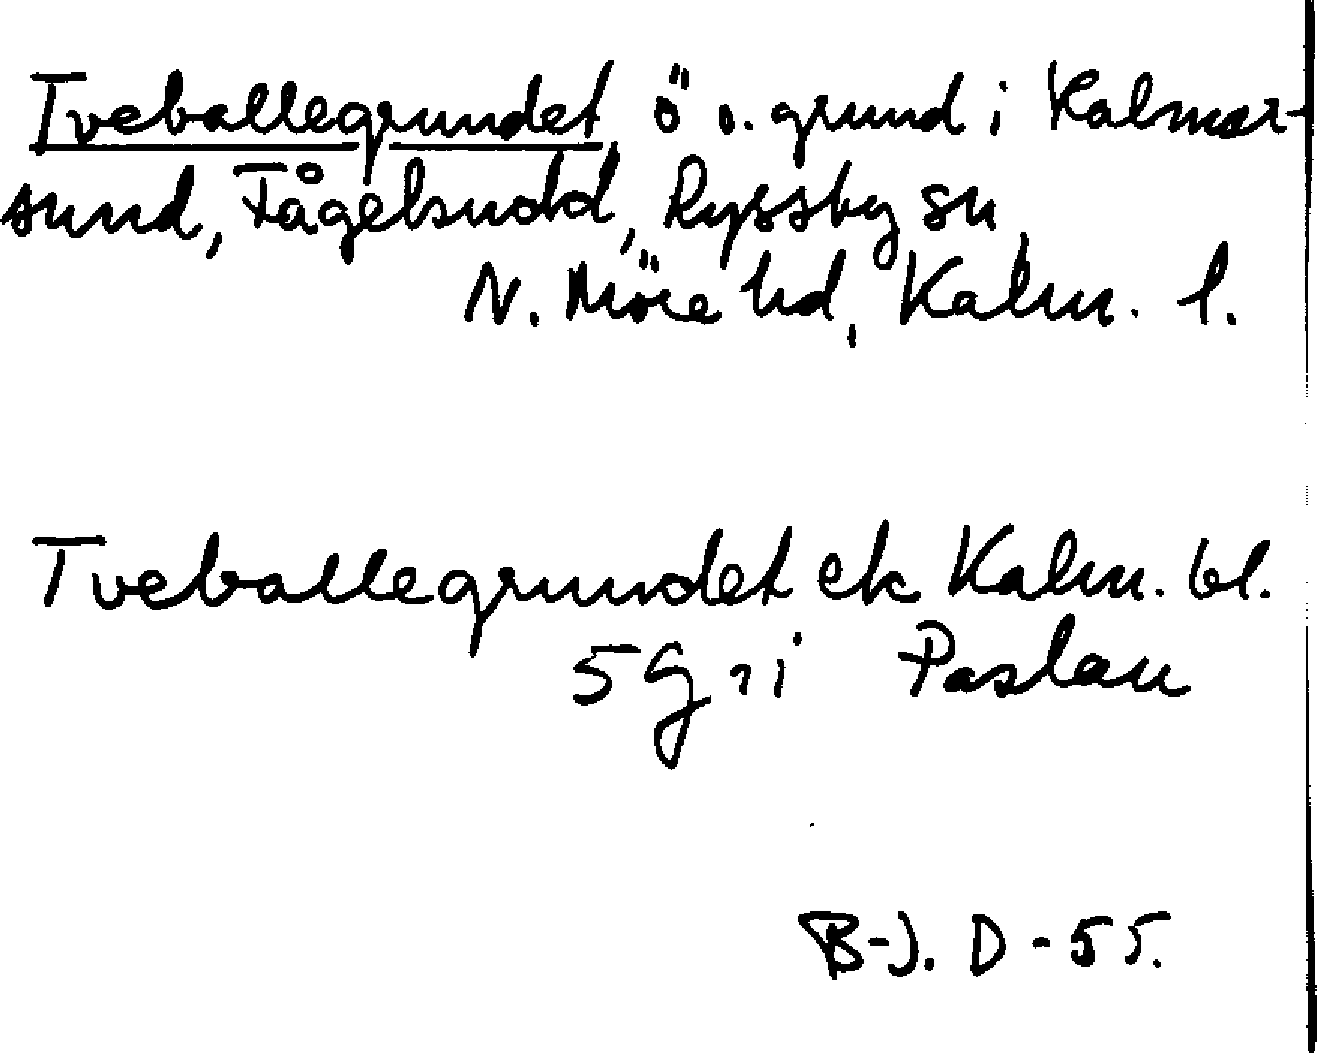 Tveballegrundet, ö o. grund i Kalmar-
sund, Fågelsudd, Ryssby sn
N. Möre hd, Kalm. l.
Tveballegrundet ek Kalm. bl.
5 G i
B-J. D-55.